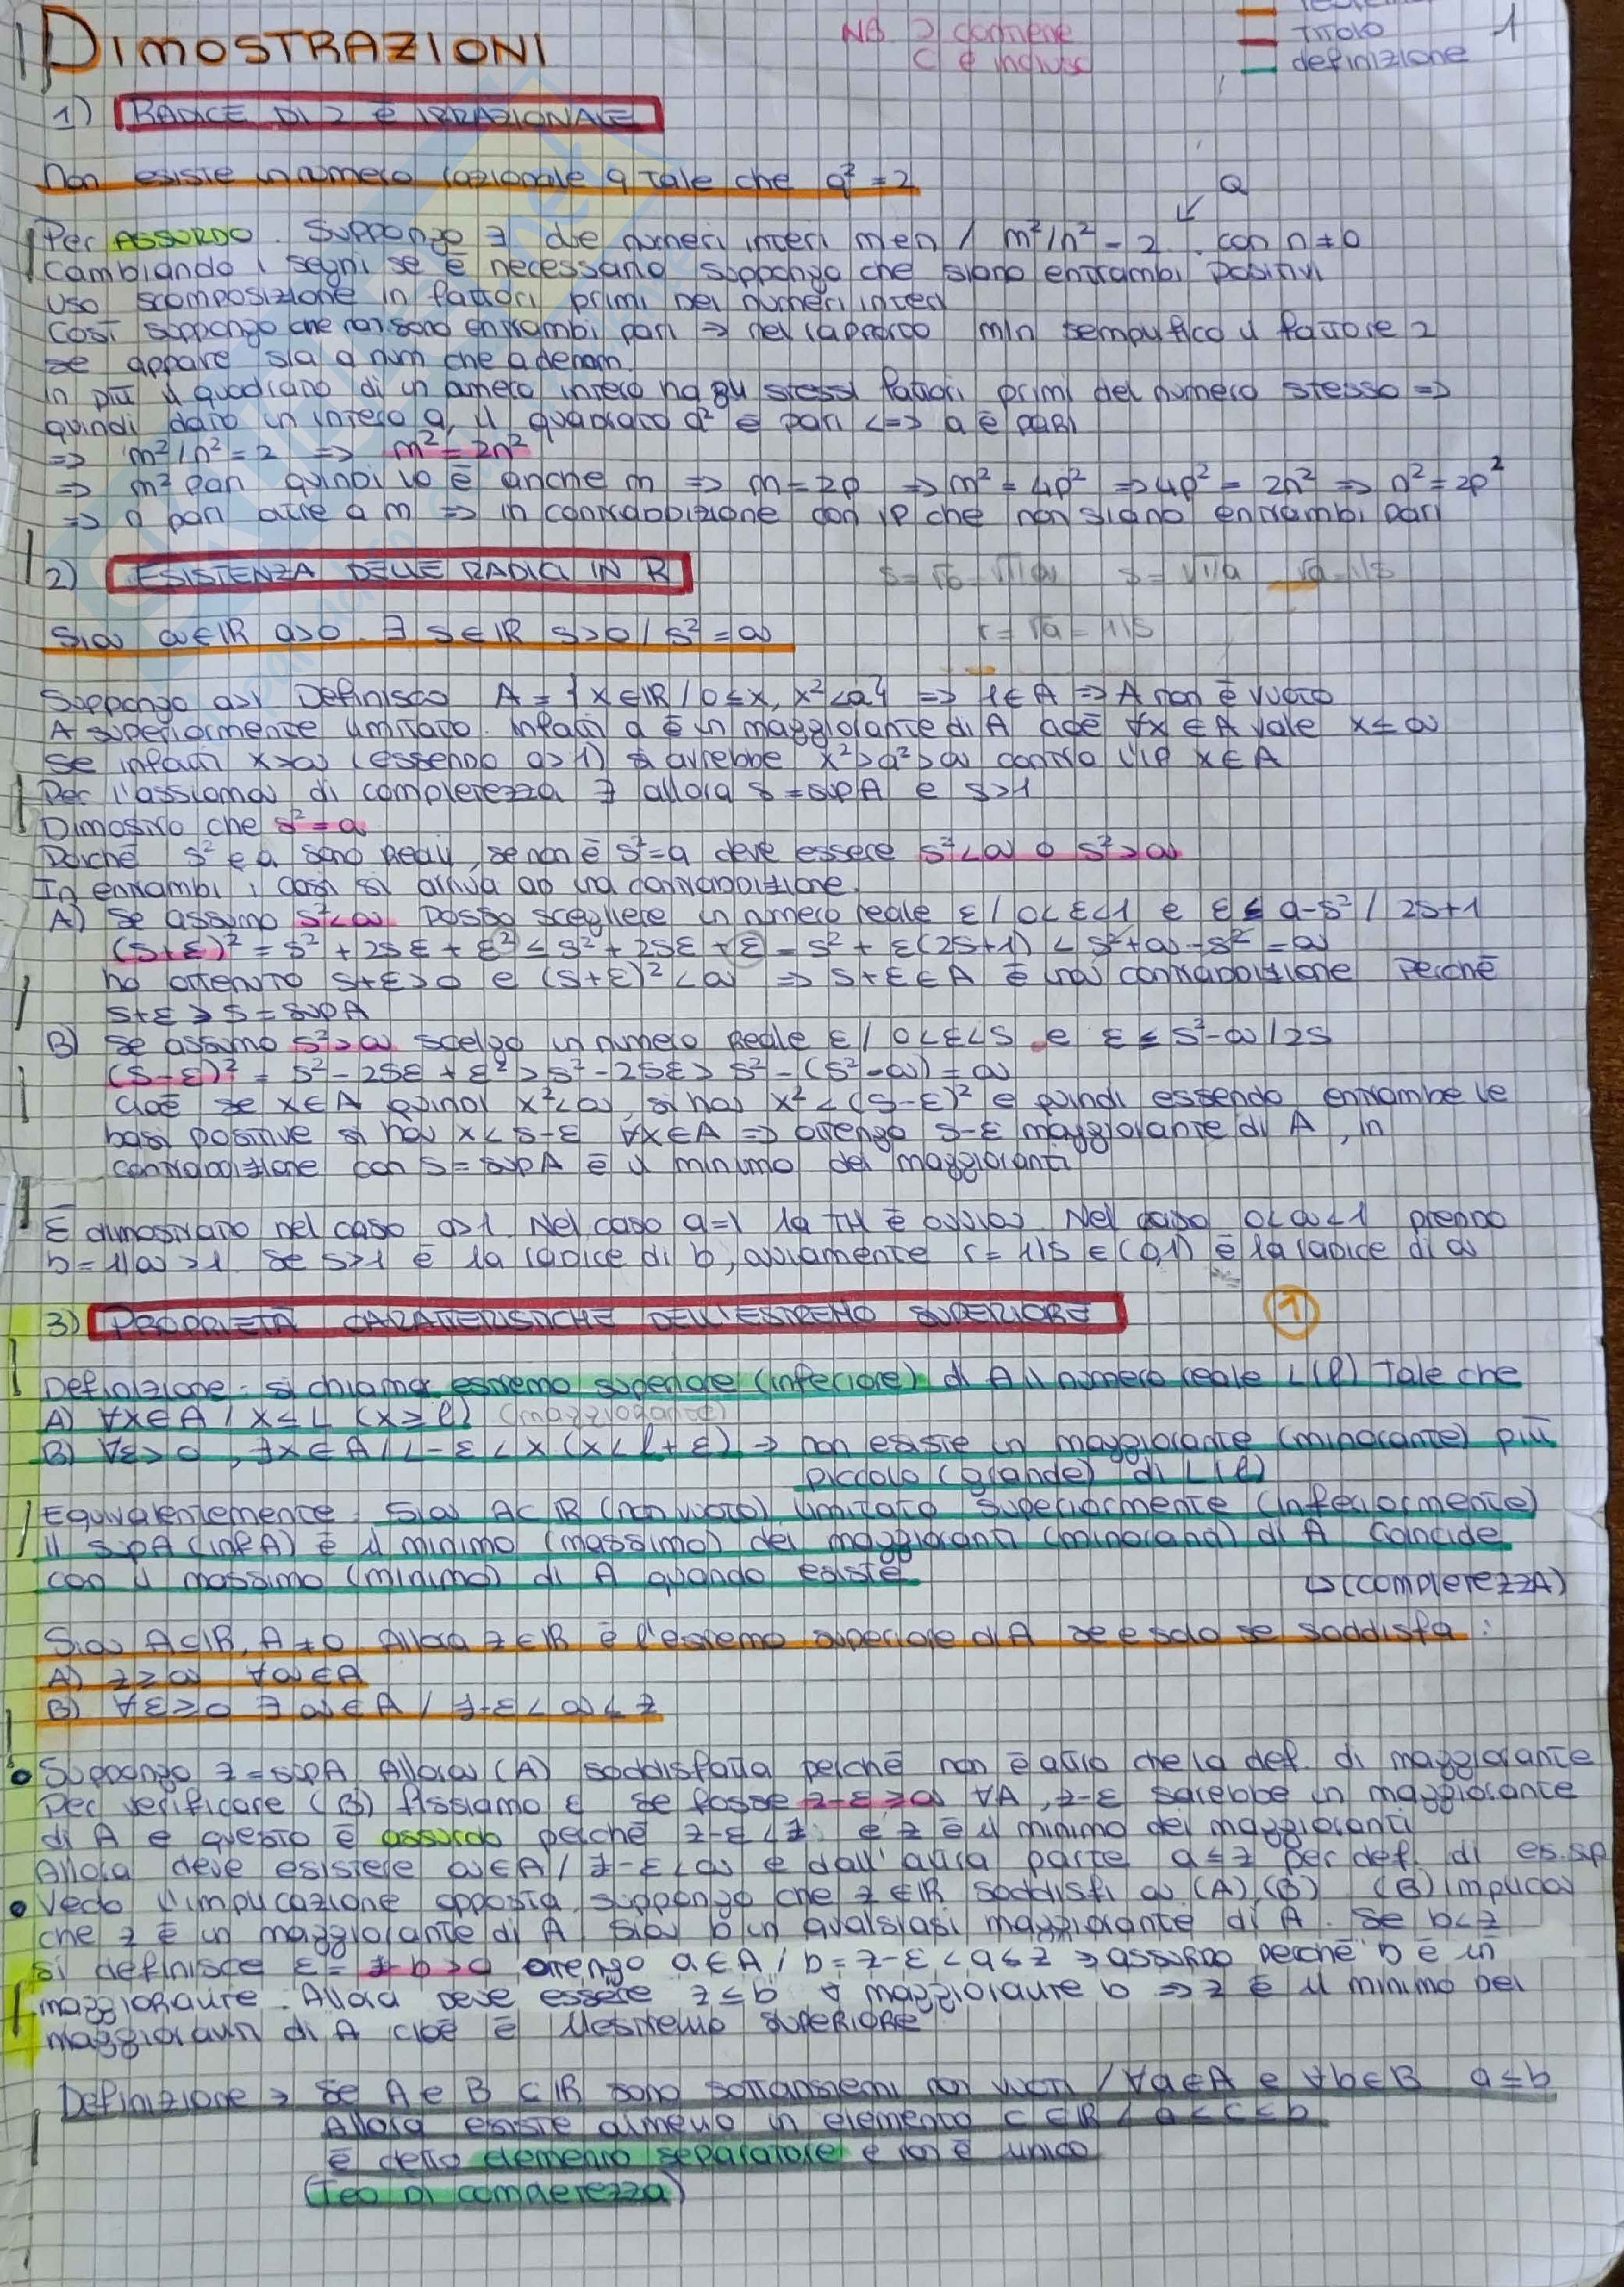 DIMOSTRAZIONI
NB ⊃ contiene
⊂ è incluso
titolo
definizione
1
1) RADICE DI 2 È IRRAZIONALE
Non esiste un numero razionale q tale che q² = 2
Q
Per ASSURDO. Suppongo ∃ due numeri interi m e n / m²/n² = 2, con n ≠ 0
Cambiando i segni se è necessario suppongo che siano entrambi positivi
Uso scomposizione in fattori primi dei numeri interi
Così suppongo che non sono entrambi pari ⇒ nel rapporto m/n semplifico il fattore 2
se appare sia a num che a denom.
In più il quadrato di un numero intero ha gli stessi fattori primi del numero stesso ⇒
quindi dato un intero a, il quadrato a² è pari <=> a è pari
⇒ m²/n² = 2 ⇒ m² = 2n²
⇒ m² pari quindi lo è anche m ⇒ m = 2p ⇒ m² = 4p² ⇒ 4p² = 2n² ⇒ n² = 2p²
⇒ n pari oltre a m ⇒ in contraddizione con ip che non siano entrambi pari
2) ESISTENZA DELLE RADICI IN R
s = √b = √1/a s = √1/a √a = 1/s
Sia a∈ℝ a>0. ∃ s∈ℝ s>0 / s² = a
r = √a = 1/s
Suppongo a>1 Definisco A = {x∈ℝ / 0 ≤ x, x² < a} ⇒ 1∈A ⇒ A non è vuoto
A superiormente limitato. Infatti a è un maggiorante di A cioè ∀x ∈ A vale x ≤ a
Se infatti x>a (essendo a>1) si avrebbe x² > a² > a contro l'ip x∈A
Per l'assioma di completezza ∃ allora s = sup A e s>1
Dimostro che s² = a
Poiché s² e a sono Reali, se non è s² = a deve essere s² < a o s² > a
In entrambi i casi si arriva ad una contraddizione.
A) Se assumo s² < a posso scegliere un numero reale ε / 0<ε<1 e ε ≤ a-s² / 2s+1
(s+ε)² = s² + 2sε + ε² ≤ s² + 2sε + ε = s² + ε(2s+1) < s² + a - s² = a
ho ottenuto s+ε>0 e (s+ε)² < a ⇒ s+ε ∈ A è una contraddizione perché
s+ε > s = sup A
B) Se assumo s² > a scelgo un numero Reale ε / 0<ε<s e ε ≤ s²-a / 2s
(s-ε)² = s² - 2sε + ε² > s² - 2sε > s² - (s²-a) = a
Cioè se x∈A quindi x² < a, si ha x² < (s-ε)² e quindi essendo entrambe le
basi positive si ha x < s-ε ∀x∈A ⇒ ottengo s-ε maggiorante di A, in
contraddizione con s = sup A è il minimo dei maggioranti
È dimostrato nel caso a>1. Nel caso a=1 la TH è ovvia. Nel caso 0<a<1 prendo
b = 1/a > 1. Se s>1 è la radice di b, ovviamente r = 1/s ∈ (0,1) è la radice di a
3) PROPRIETÀ CARATTERISTICHE DELL'ESTREMO SUPERIORE
1
Definizione: si chiama estremo superiore (inferiore) di A il numero reale L(ℓ) tale che
A) ∀x∈A / x ≤ L (x ≥ ℓ) (maggiorante)
B) ∀ε>0, ∃x∈A / L-ε < x (x < ℓ+ε) ⇒ non esiste un maggiorante (minorante) più
piccolo (grande) di L(ℓ)
Equivalentemente: Sia A⊂ℝ (non vuoto) limitato superiormente (inferiormente)
il sup A (inf A) è il minimo (massimo) dei maggioranti (minoranti) di A. Coincide
con il massimo (minimo) di A quando esiste
↳ (completezza)
Sia A⊆ℝ, A≠0. Allora z∈ℝ è l'estremo superiore di A se e solo se soddisfa:
A) z ≥ a ∀a∈A
B) ∀ε≥0 ∃ a∈A / z-ε < a ≤ z
• Suppongo z = sup A. Allora (A) soddisfatta perché non è altro che la def. di maggiorante
Per verificare (B) fissiamo ε se fosse z-ε ≥ a ∀A, z-ε sarebbe un maggiorante
di A e questo è assurdo perché z-ε < z e z è il minimo dei maggioranti
Allora deve esistere a∈A / z-ε < a e dall'altra parte a ≤ z per def. di es.sp
• Vedo l'implicazione opposta, suppongo che z∈ℝ soddisfi a (A), (B). (B) implica
che z è un maggiorante di A. Sia b un qualsiasi maggiorante di A. Se b<z
si definisce ε = z-b > 0 ottengo a∈A / b = z-ε < a ≤ z ⇒ assurdo perché b è un
maggiorante. Allora deve essere z ≤ b ∀ maggiorante b ⇒ z è il minimo dei
maggioranti di A cioè è l'estremo superiore
Definizione ⇒ Se A e B ⊂ ℝ sono sottoinsiemi non vuoti / ∀a∈A e ∀b∈B a ≤ b
Allora esiste almeno un elemento c∈ℝ / a ≤ c ≤ b
è detto elemento separatore e non è unico
(Teo di completezza)